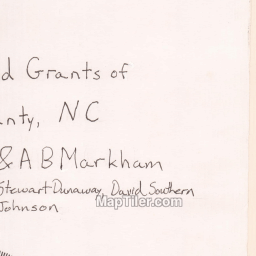 d Grants of
nty, NC
& A B Markham
Stewart Dunaway, David Southern
Johnson
MapTiler.com